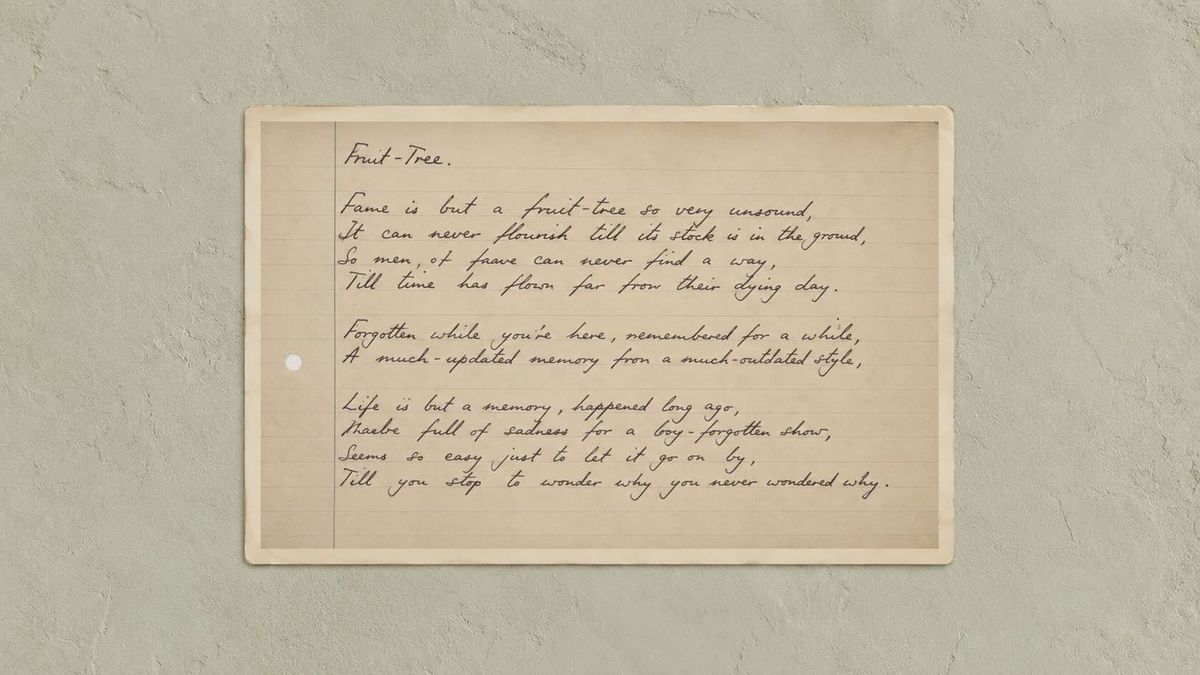 Fruit-Tree.
Fame is but a fruit-tree so very unsound,
It can never flourish till its stock is in the ground,
So men of can never find a way,
Till time has flown far from their dying day.
Forgotten while you're here, remembered for a while,
A much-updated memory from a much-outdated style,
Life is but a memory, happened long ago,
full of sadness for a forgotten show,
Seems so easy just to let it go on by,
Till you stop to wonder why you never wondered why.